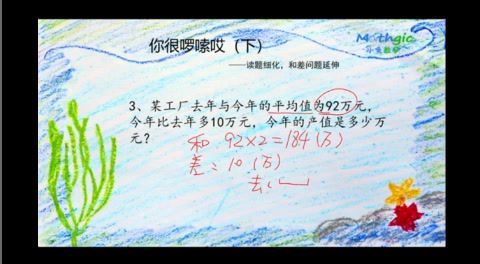 Mathgic
小兔数学
你很啰嗦哎（下）
——读题细化，和差问题延伸
3、某工厂去年与今年的平均值为92万元，
今年比去年多10万元，今年的产值是多少万
元？
和 92×2=184(万)
差：10(万)
去